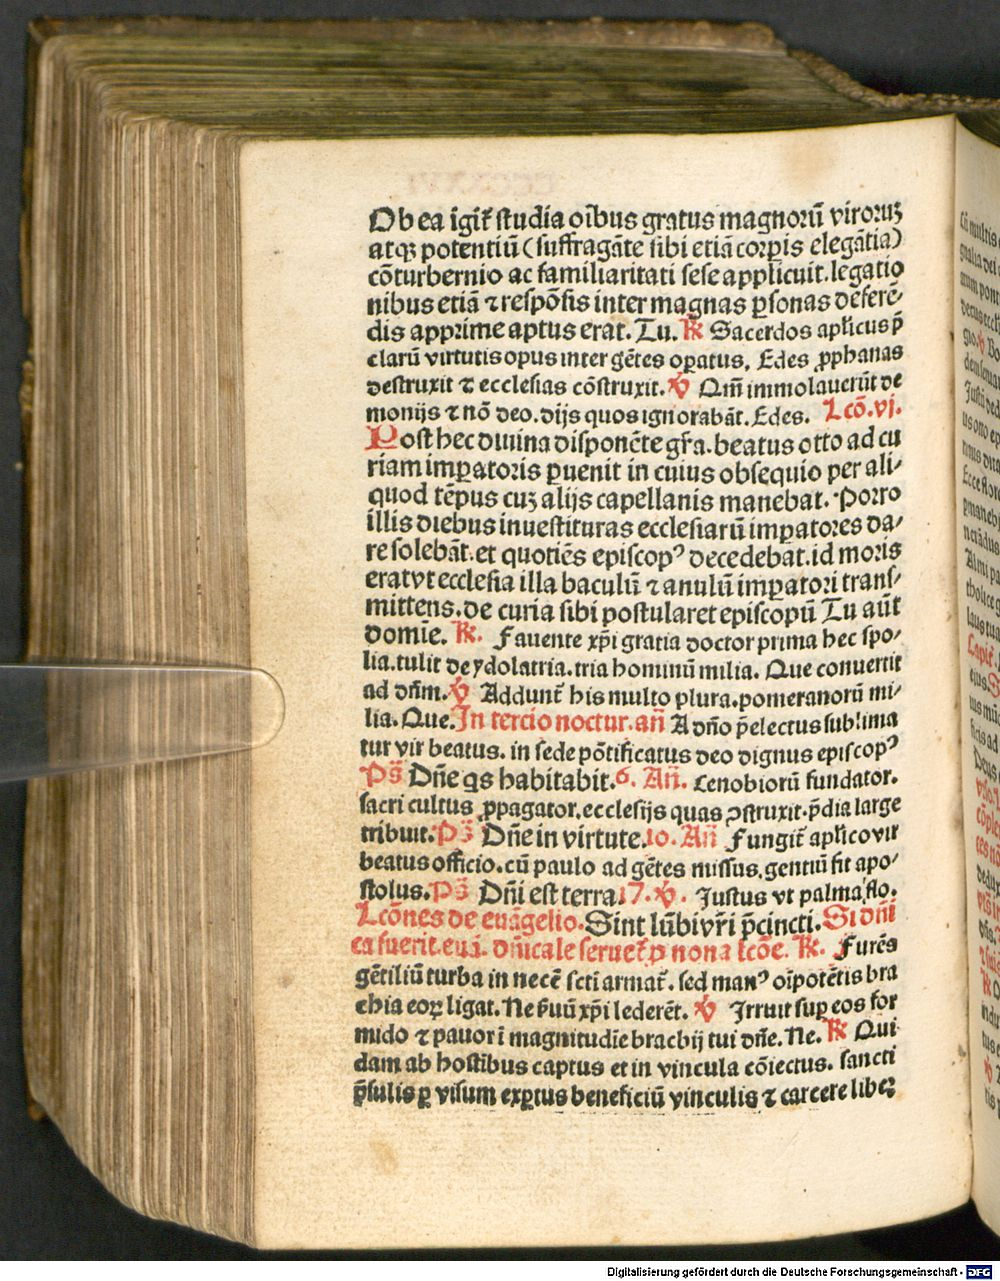 Ob ea igit᷑ ſtudia oı̄bus gratus magnorū viroruꝫ
atqꝫ potentiū (ſuffragāte ſibi etiā corꝑis elegātia)
cōturbernio ac familiaritati ſeſe applicuit. legatio
nibus etiā ⁊ reſpōſis inter magnas ꝑſonas deferē⸗
dis apprime aptus erat. Tu. ℟ Sacerdos apl̓icus p̄
clarū virtutis opus inter gētes oꝑatus. Edes ꝓphanas
deſtruxit ⁊ ecclesias cōſtruxit. ℣ Qm̄ immolauerūt de
monijs ⁊ nō deo. dijs quos ignorabāt. Edes. Lcō. vj.
Poſt hec diuina diſponēte gr̄a. beatus otto ad cu
riam imꝑatoris ꝑuenit in cuius obſequio per ali⸗
quod tēpus cuꝫ alijs capellanis manebat. Porro
illis diebus inueſtituras eccleſiarū imꝑatores da⸗
re ſolebāt. et quotiēs epiſcopꝰ decedebat. id moris
erat vt ecclesia illa baculū ⁊ anulū imꝑatori tranſ⸗
mittens. de curia ſibi poſtularet epiſcopū Tu aūt
domı̄e. ℟. Fauente xp̄i gratia doctor prima hec ſpo⸗
lia. tulit de ydolatria. tria hominū milia. Que conuertit
ad dn̄m. ℣ Addunt᷑ his multo plura. pomeranorū mi⸗
lia. Que. In tercio noctur. an̄ A dn̄o p̄electus ſublima
tur vir beatus. in ſede pōtificatus deo dignus epiſcopꝰ
Ps̄ Dn̄e qs habitabit. 6. An̄. Cenobiorū fundator.
ſacri cultus ꝓpagator. eccleſijs quas ↄſtruxit. p̄dia large
tribuit. Ps̄ Dn̄e in virtute. 10. An̄ Fungit᷑ apl̓ico vir
beatus officio. cū paulo ad gētes miſſus. gentiū fit apo⸗
ſtolus. Ps̄ Dn̄i eſt terra 17. ℣. Juſtus vt palma flo.
Lcōnes de euāgelio. Sint lūbi vr̄i p̄cincti. Si dn̄i
ca fuerit. euā. dn̄icale ſeruet᷑ ꝓ nona lcōe. ℟. Furēs
gētiliū turba in necē ſcti armat᷑. ſed manꝰ oı̄potētis bra
chia eoꝝ ligat. Ne ẜuū xp̄i lederēt. ℣ Irruit ſuꝑ eos for
mido ⁊ pauor ī magnitudīe brachij tui dn̄e. Ne. ℟ Qui
dam ab hoſtibus captus et in vincula cōiectus. ſancti
p̄ſulis ꝑ viſum exꝑtus beneficiū vinculis ⁊ carcere libeꝛ
Digitalisierung gefördert durch die Deutsche Forschungsgemeinschaft - DFG